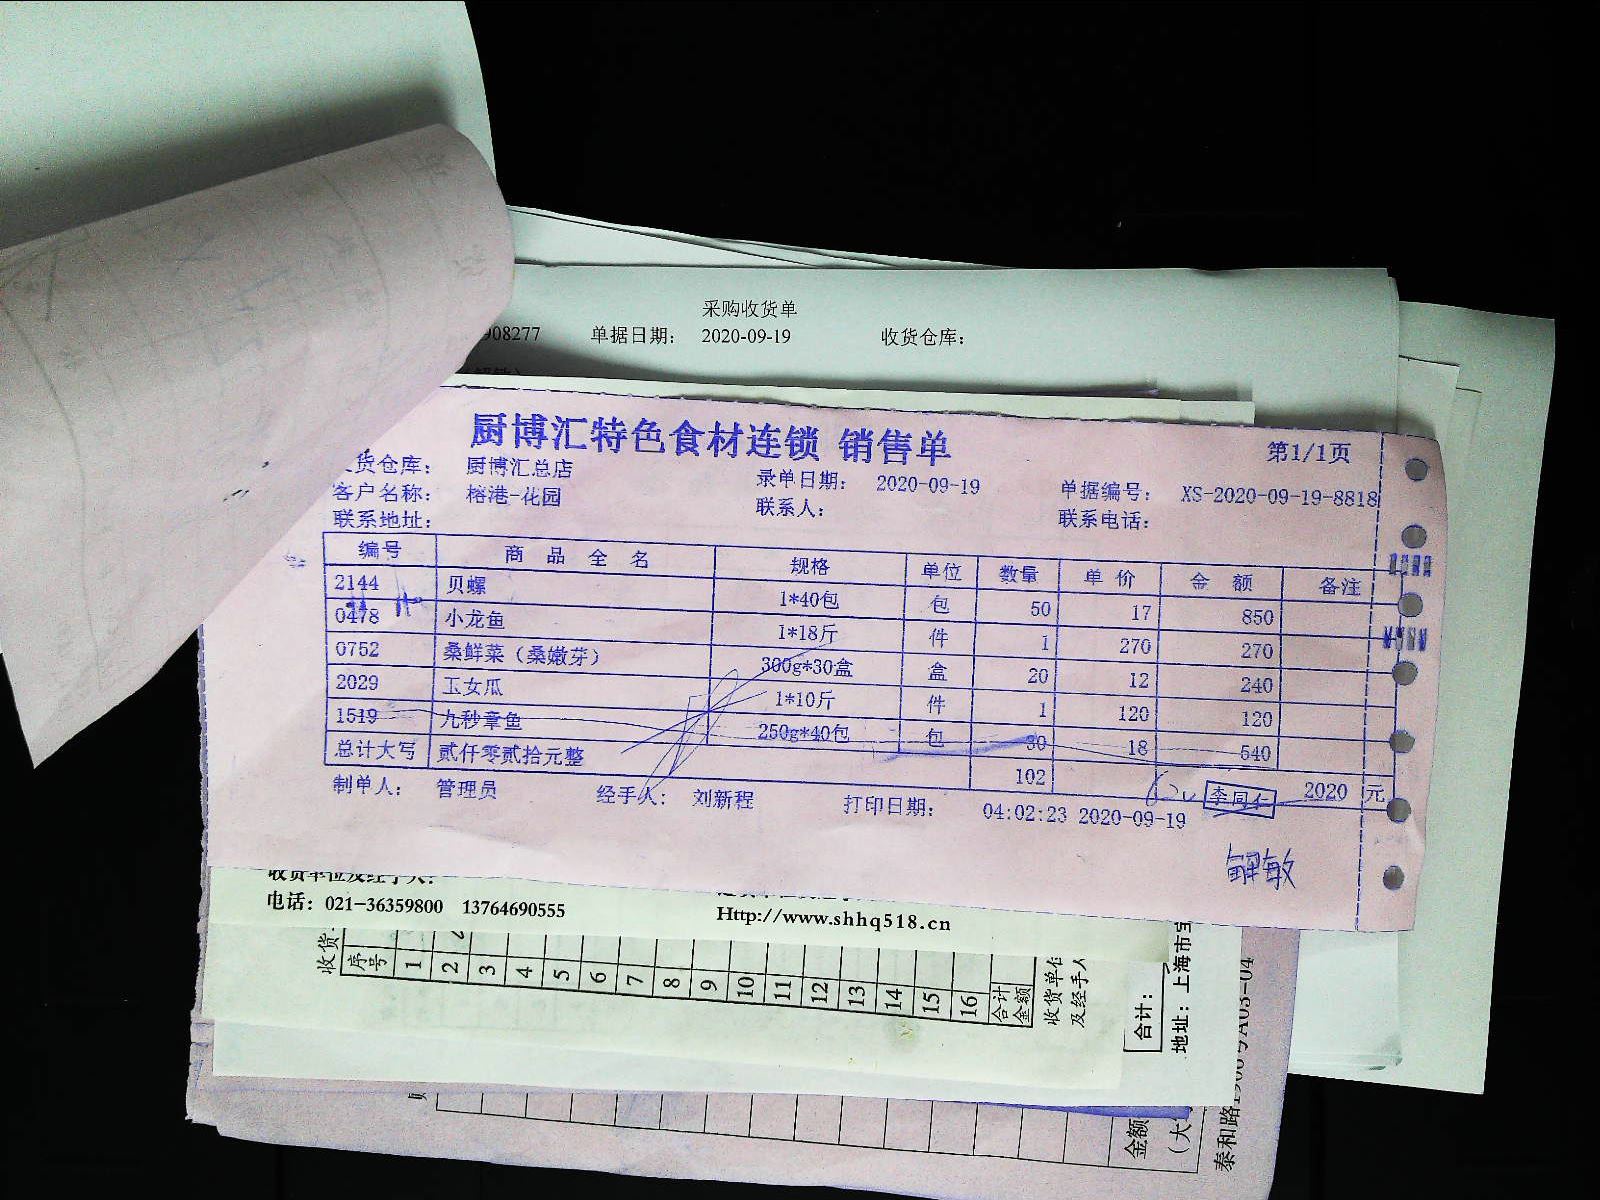 采购收货单
908277 单据日期： 2020-09-19 收货仓库：
厨博汇特色食材连锁 销售单
第1/1页
货仓库： 厨博汇总店 录单日期： 2020-09-19 单据编号： XS-2020-09-19-8818
客户名称： 榕港-花园 联系人： 联系电话：
联系地址：
编号 商品全名 规格 单位 数量 单价 金额 备注
2144 贝螺 1*40包 包 50 17 850
0478 小龙鱼 1*18斤 件 1 270 270
0752 桑鲜菜（桑嫩芽） 300g*30盒 盒 20 12 240
2029 玉女瓜 1*10斤 件 1 120 120
1519 九秒章鱼 250g*40包 包 30 18 540
总计大写 贰仟零贰拾元整 102 2020 元
制单人： 管理员 经手人： 刘新程 打印日期： 04:02:23 2020-09-19
李同仁
解敏
收货单位及经手人：
电话：021-36359800 13764690555 Http://www.shhq518.cn
收货
序号 1 2 3 4 5 6 7 8 9 10 11 12 13 14 15 16 合计金额
收货单位及经手人
合计：
地址：上海市宝
金额（大
泰和路